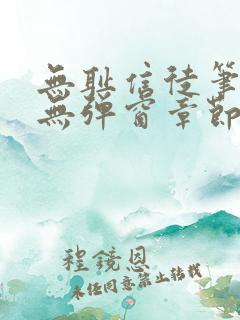 無恥信徒筆
無彈窗章節
程鏡恩
未經同意禁止轉載